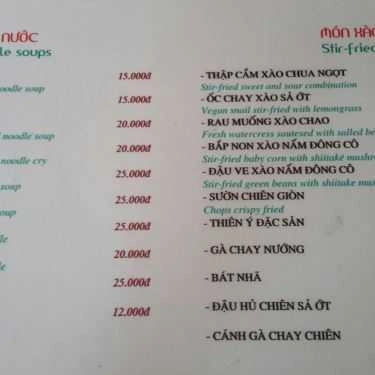 NƯỚC
le soups
15.000đ
noodle soup
15.000đ
20.000đ
noodle soup
20.000đ
noodle cry
25.000đ
soup
25.000đ
soup
25.000đ
dle
20.000đ
dle
25.000đ
12.000đ
MÓN XÀO
Stir-fried
- THẬP CẨM XÀO CHUA NGỌT
Stir-fried sweet and sour combination
- ỐC CHAY XÀO SẢ ỚT
Vegan snail stir-fried with lemongrass
- RAU MUỐNG XÀO CHAO
Fresh watercress sautesed with salled be
- BẮP NON XÀO NẤM ĐÔNG CÔ
Stir-fried baby corn with shiitake mushr
- ĐẬU VE XÀO NẤM ĐÔNG CÔ
Stir-fried green beans with shiitake mush
- SƯỜN CHIÊN GIÒN
Chops crispy fried
- THIÊN Ý ĐẶC SẢN
- GÀ CHAY NƯỚNG
- BÁT NHÃ
- ĐẬU HỦ CHIÊN SẢ ỚT
- CÁNH GÀ CHAY CHIÊN